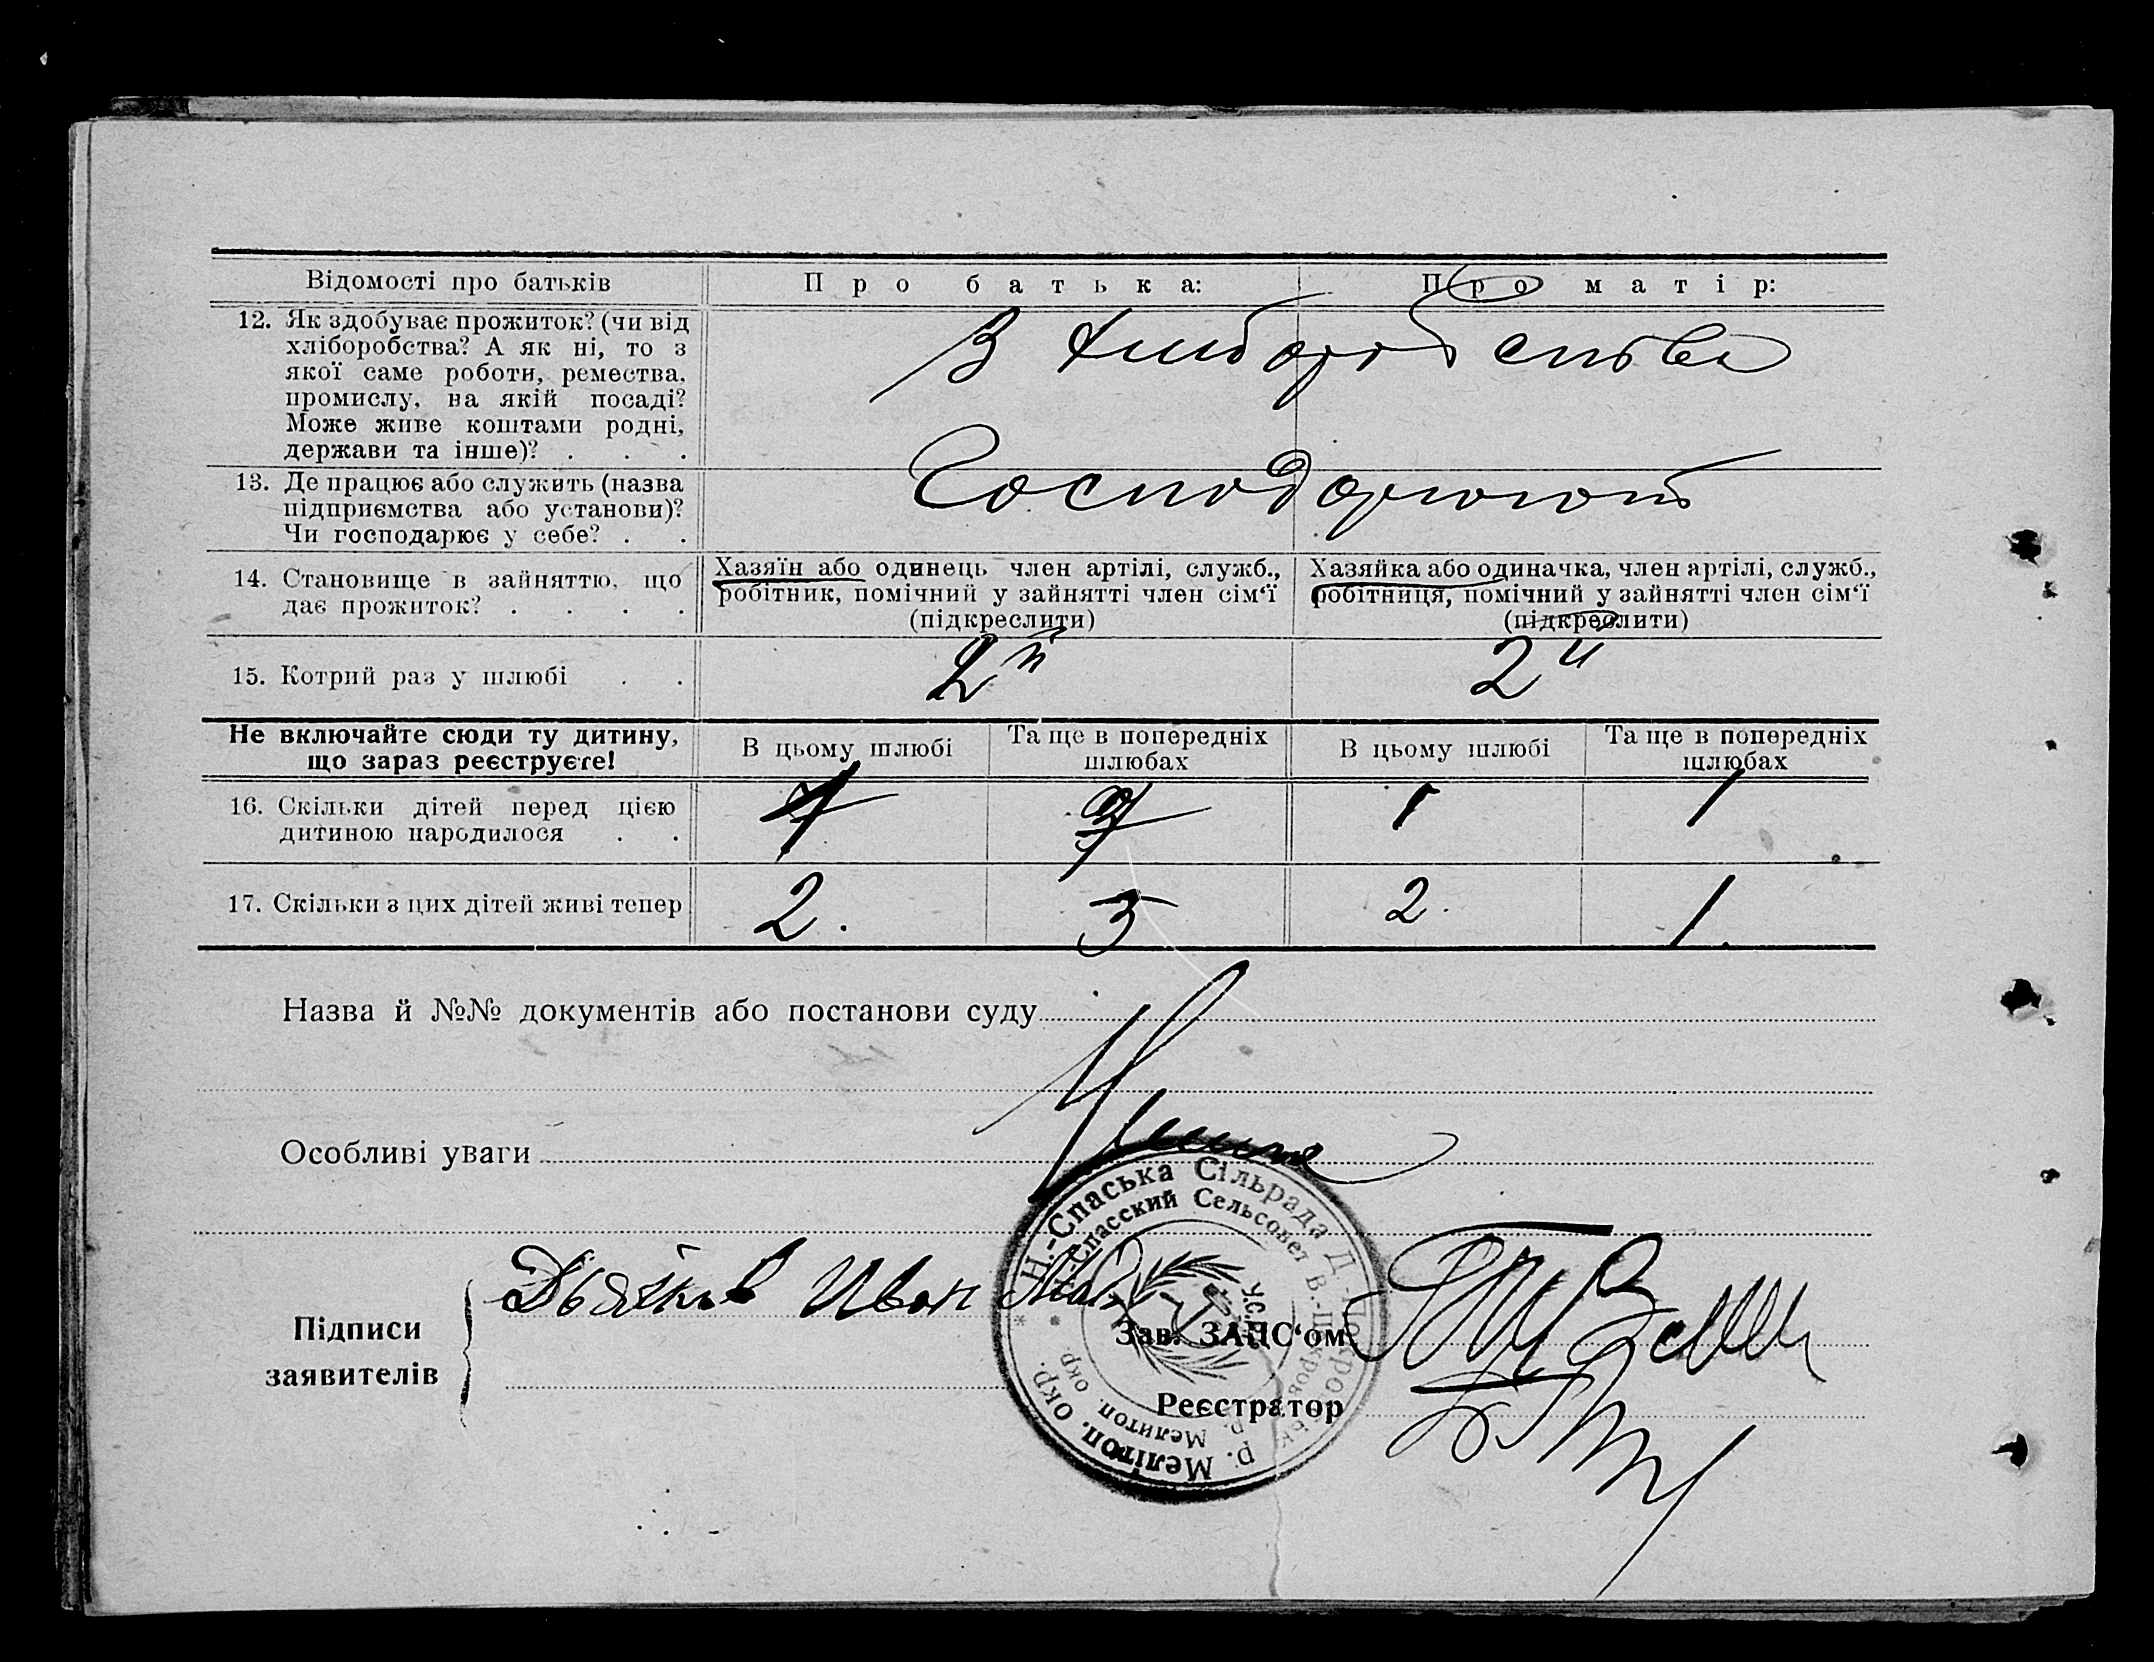 Відомості про батьків
Про батька:
Про матір:
12. Як здобуває прожиток? (чи від
хліборобства? А як ні, то з
якої саме роботи, ремества,
промислу, на якій посаді?
Може живе коштами родні,
держави та інше)? . . .
З хліборобства
13. Де працює або служить (назва
підприємства або установи)?
Чи господарює у себе? . .
Господарюють
14. Становище в зайняттю, що
дає прожиток? . . . .
Хазяїн або одинець член артілі, служб.,
робітник, помічний у зайнятті член сім'ї
(підкреслити)
Хазяйка або одиначка, член артілі, служб.,
робітниця, помічний у зайнятті член сім'ї
(підкреслити)
15. Котрий раз у шлюбі . .
2й
2й
Не включайте сюди ту дитину,
що зараз реєструєте!
В цьому шлюбі
Та ще в попередніх
шлюбах
В цьому шлюбі
Та ще в попередніх
шлюбах
16. Скільки дітей перед цією
дитиною народилося . .
1
1
17. Скільки з цих дітей живі тепер
2.
3
2.
1.
Назва й №№ документів або постанови суду
Особливі уваги
Підписи
заявителів
Дьяков Иван
Зав. ЗАПС'ом
Реєстратор
Н.-Спаська Сільрада Д.-Покровськ. р. Мелітоп. окр.
Н.-Спасский Сельсовет В.-Покровск. р. Мелитоп. окр.
У.С.Р.Р.